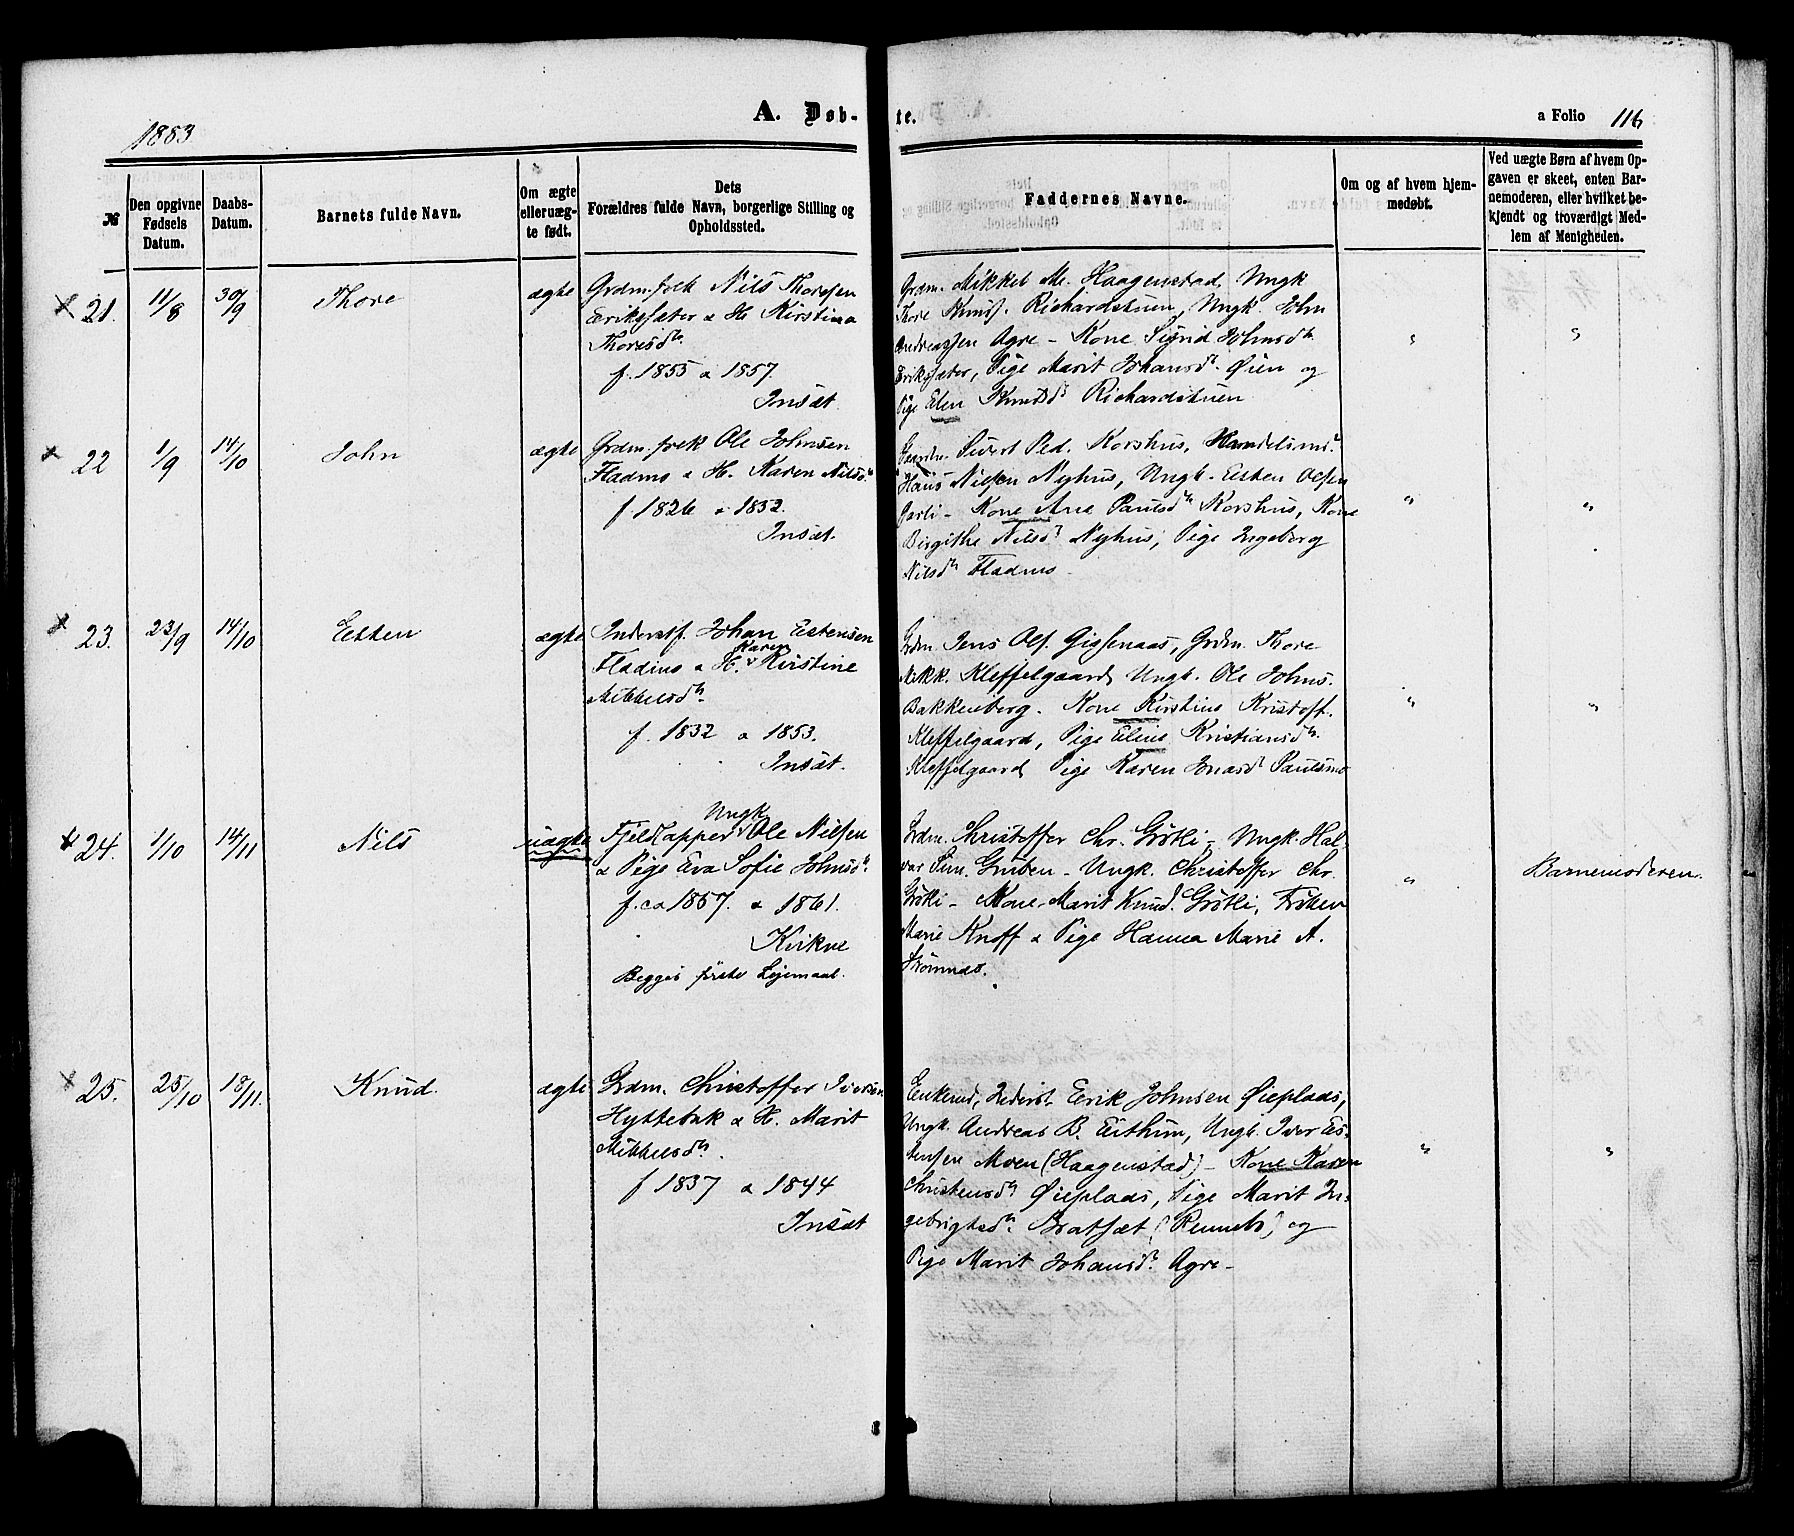 1883
A. Døb-
te.
a Folio 116
№
Den opgivne Fødsels Datum.
Daabs-Datum.
Barnets fulde Navn.
Om ægte elleruæg-te født.
Dets Forældres fulde Navn, borgerlige Stilling og Opholdssted.
Faddernes Navne.
Om og af hvem hjem-medøbt.
Ved uægte Børn af hvem Op-gaven er skeet, enten Bar-nemoderen, eller hvilket be-kjendt og troværdigt Med-lem af Menigheden.
21. 11/8 30/9 Thore ægte
Grdm.folk Nils Thoresen
Eriksæter & H. Kirstina
Thoresdtr
f. 1855 & 1857
Insæt
Grdm. Mikkel M. Haagenstad, Ungk
Thore Knuds. Richardstuen, Ungk. John
Andreassen Agre - Kone Sigrid Johnsdtr
Eriksæter, Pige Marit Johansdtr Øien og
Pige Elen Knudsdtr Richardstuen
" "
22 1/9 14/10 John ægte
Grdm.folk Ole Johnsen
Fladmo & H. Karen Nilsd.
f. 1826 & 1832.
Insæt.
Gaardm. Sivert Ped. Korshus, Handelsmd.
Hans Nilsen Nyhus, Ungk. Esten Olsen
- Kone Ane Paulsdtr Korshus, Kone
Birgithe Nilsdtr Nyhus, Pige Ingeborg
Nilsdtr Fladmo
" "
23. 23/9 14/10 Esten ægte
Inderstf. Johan Estensen
Karen
Fladmo & H. v Kirstine
Mikkelsdtr
f. 1832 & 1853.
Insæt.
Grdm. Jens Ols. Gissenaas, Grdm. Thore
Mikk. Kleffelgaard, Ungk. Ole Johns.
Bakkeiberg. Kone Kirstine Kristoff.
Kleffelgaard, Pige Eline Kristiansdtr.
Kleffelgaard Pige Karen Jonasdtr Paulsmo
" "
24. 1/10 14/11 Nils uægte
Ungk
Fjeldlapper v Ole Nilsen
& Pige Eva Sofie Johnsdtr
f. ca 1857. & 1861.
Kvikne
Begges første Lejemaal.
Grdm. Christoffer Chr. Gråtli - Ungk. Hal-
var Sim. Gruben - Ungk. Christoffer Chr.
Gråtli - Kone Marit Knud. Gråtli, Frøken
Marie Knoff & Pige Hanna Marie A.
Strømmo.
"
Barnemoderen.
25. 25/10 18/11. Knud. ægte
Grdm. Christoffer Iversen
Hyttebak & H. Marit
Mikkelsdtr.
f 1837 & 1844
Insæt
Enkemd, Inderst. Erik Johnsen Øieplads,
Ungk. Andreas B. Eithun, Ungk. Iver Es-
tensen Moen (Haagenstad) - Kone Karen
Christensdtr Øieplads, Pige Marit In-
gebrigtsdtr. Bratset (Rennebo) og
Pige Marit Johansdtr. Agre -
" "